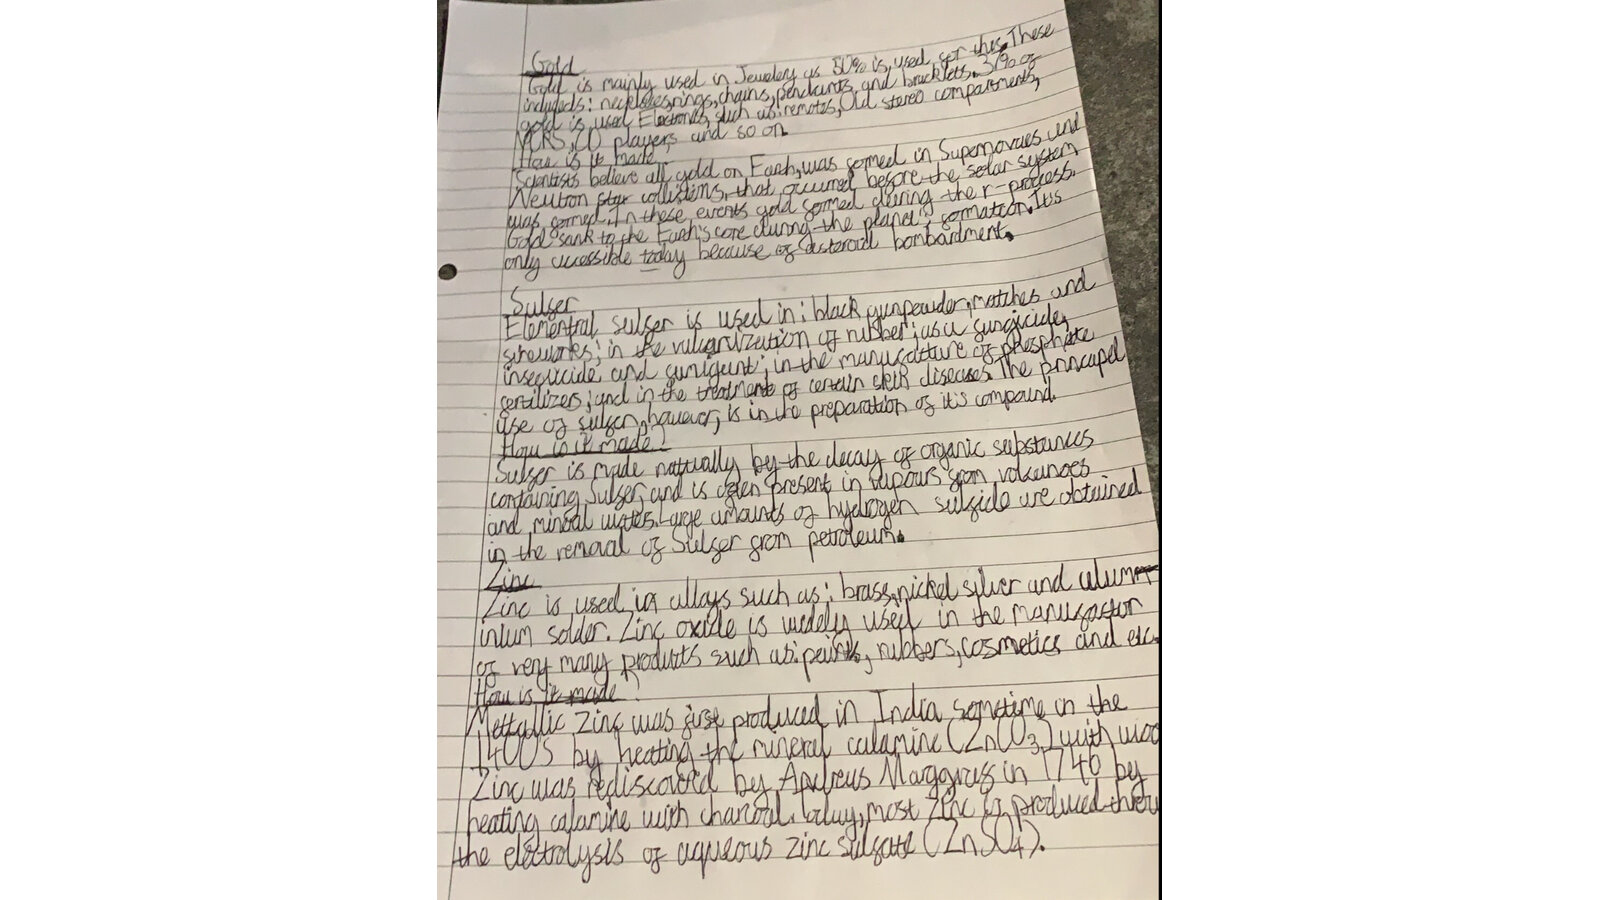 Gold
Gold is mainly used in Jewelery as 50% is used for this. These
includeds: neckleses, rings, chains, pendants, and bracklets. 37% of
gold is used Electronics, such as: remotes, Old stereo compartments,
VCRS, CD players and so on.
How is it made
Scientists believe all gold on Earth, was formed in Supernovaes and
Neutron star collistions, that occurred before the solar system
was formed. In these events gold formed during the r-process.
Gold sank to the Earth's core during the planet's formation. Its
only accessible today because of asteroid bombardment.
Sulfer
Elementral sulfer is used in: black gunpowder, matches and
fireworks; in the vulcanization of rubber; as a fungicide,
insegticide and fumigent; in the manufacture of phosphate
fertilizers; and in the treatment of certain skin diseases. The princapel
use of sulfer, however, is in the preparation of it's compound.
How is it made?
Sulfer is made naturally by the decay of organic substances
containing Sulfer, and is often present in vapours from volcanoes
and mineral waters. Large amounts of hydrogen sulfide are obtained
in the removal of Sulfer from petroleum.
Zinc
Zinc is used in alloys such as: brass, nickel silver and alum
inium solder. Zinc oxide is widely used in the manufactur
of very many products such as: paints, rubbers, cosmetics and etc.
How is it made?
Mettallic Zinc was first produced in India sometime in the
1400S by heating the mineral calamine (ZnCO3) with woo
Zinc was rediscovered by Andreas Marggraf in 1746 by
heating calamine with charcoal. today, most Zinc is produced throu
the electrolysis of aqueous zinc sulfate (ZnSO4).